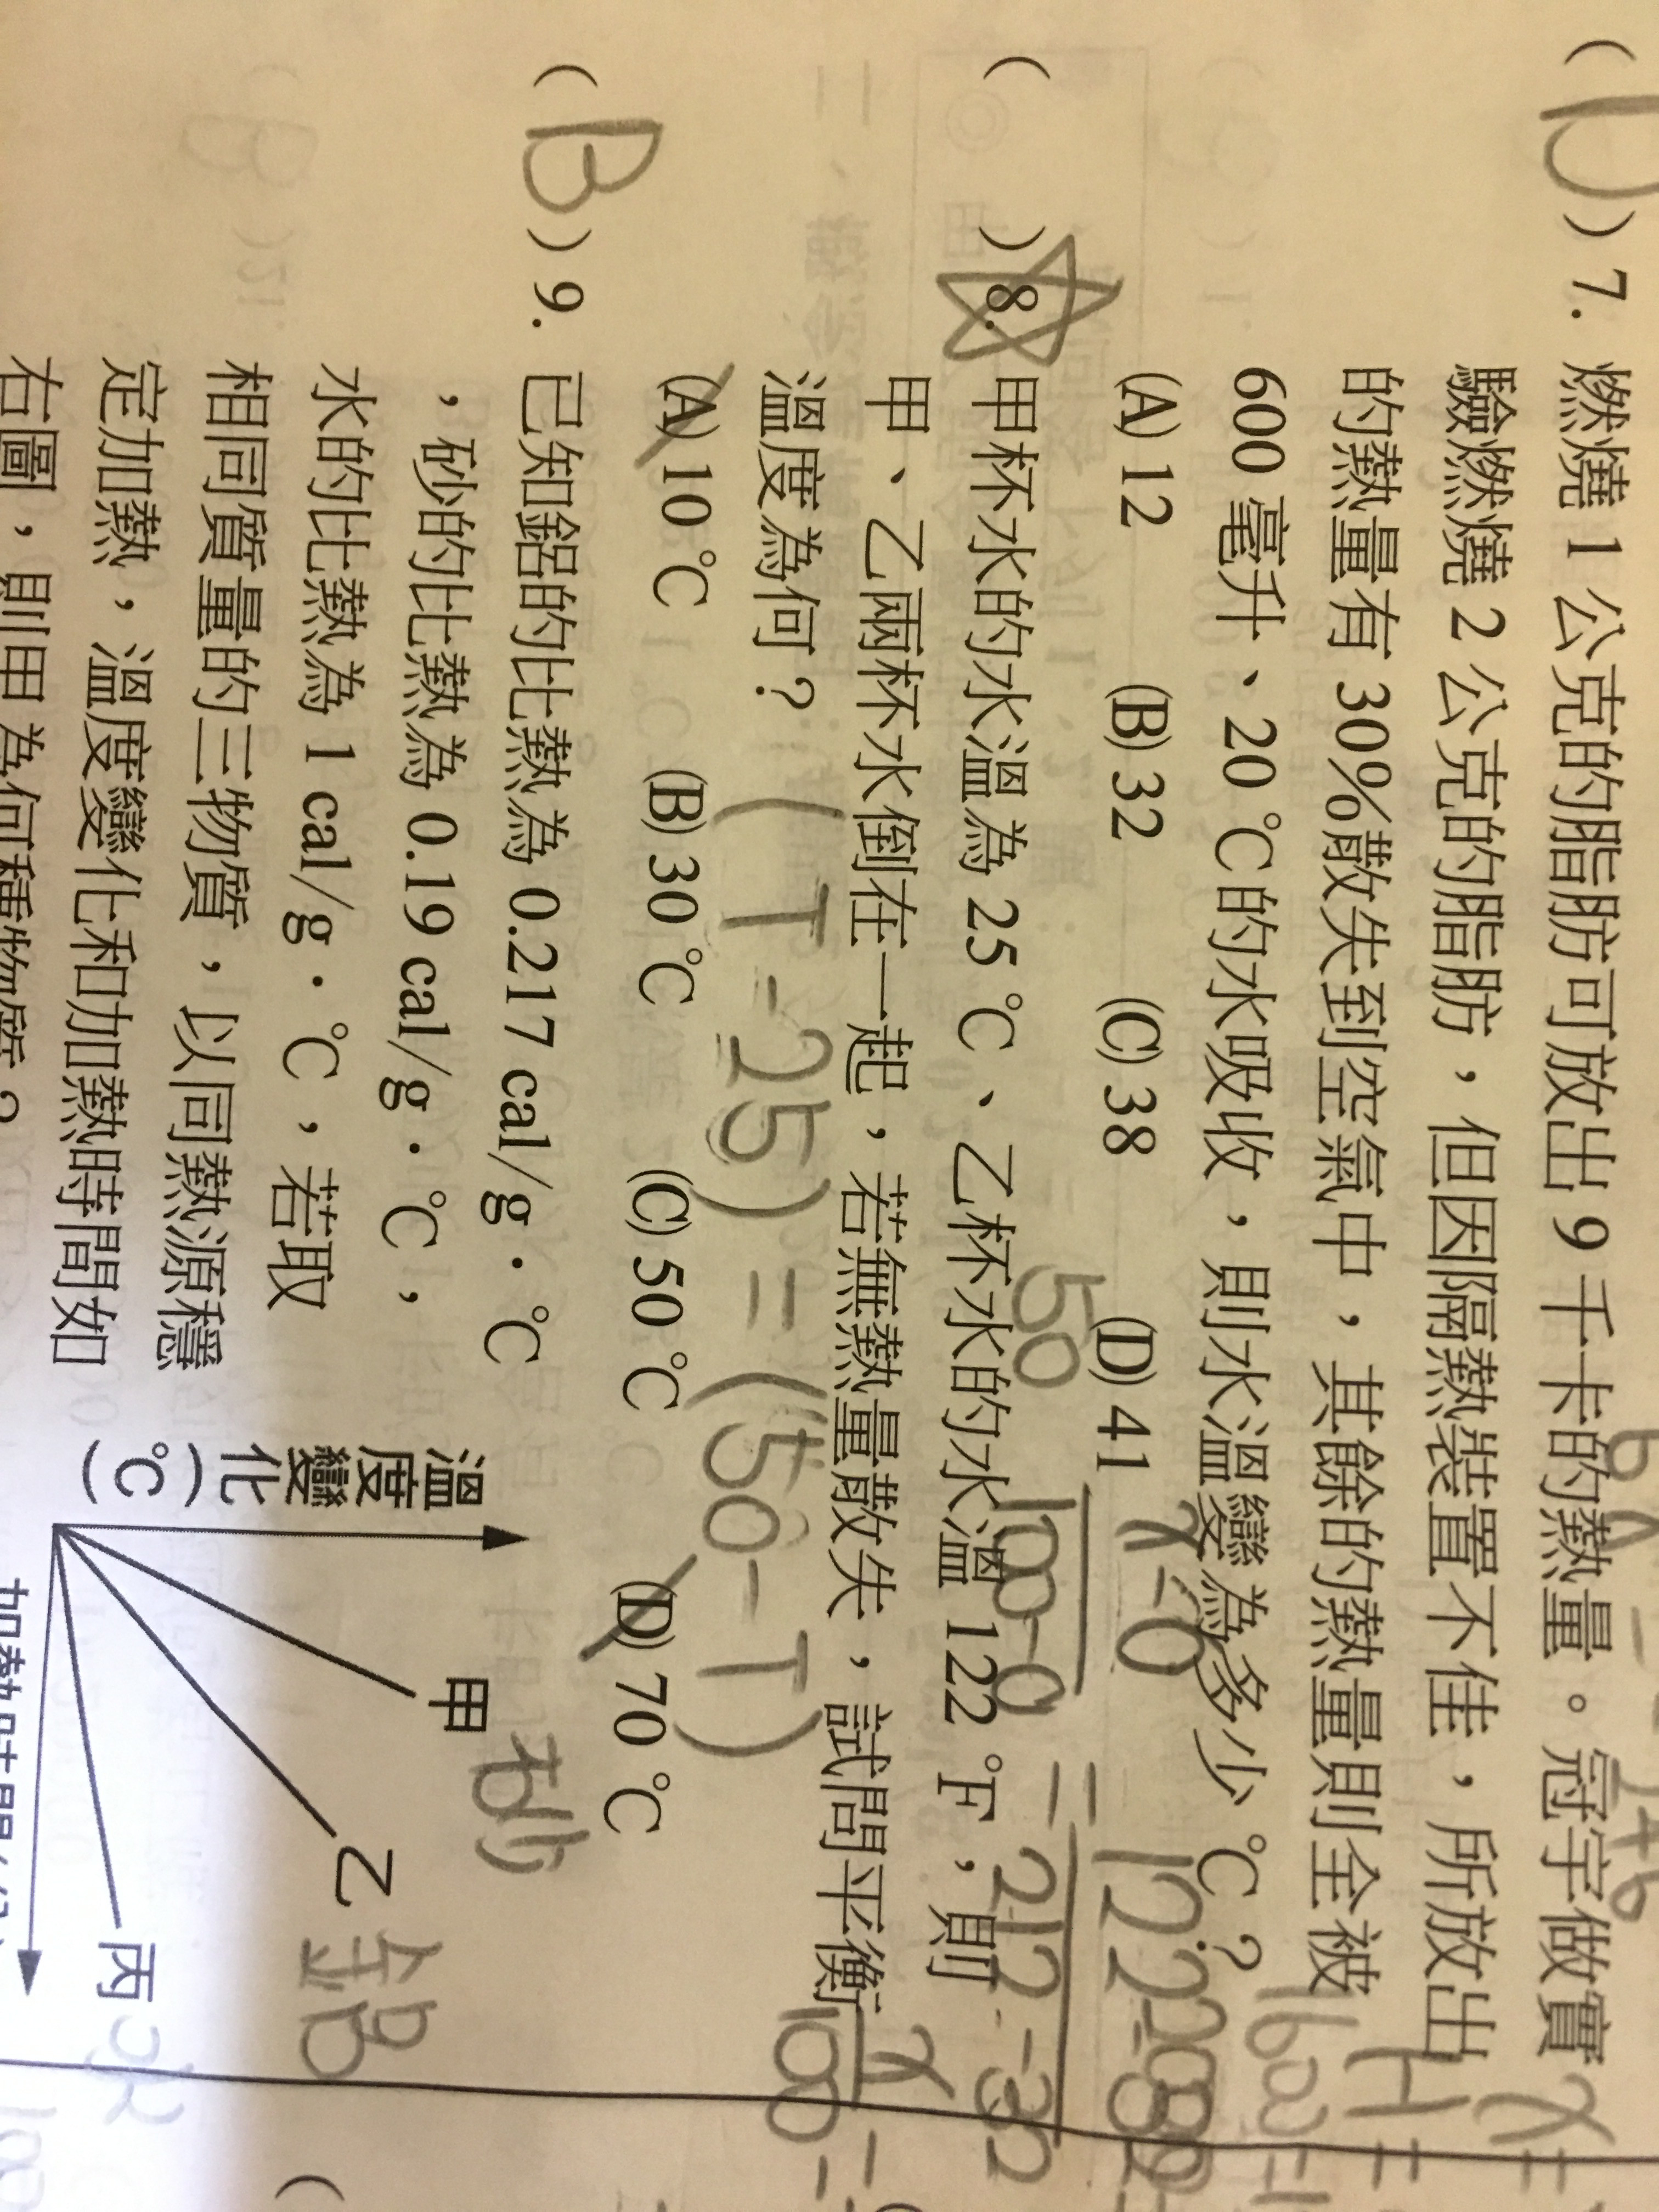 (D)7. 燃燒 1 公克的脂肪可放出 9 千卡的熱量。冠宇做實
驗燃燒 2 公克的脂肪，但因隔熱裝置不佳，所放出
的熱量有 30%散失到空氣中，其餘的熱量則全被
600 毫升、20 ℃的水吸收，則水溫變為多少 ℃？
(A) 12 (B) 32 (C) 38 (D) 41
x-0
50
100-0 = 212-32
( )8. 甲杯水的水溫為 25 ℃、乙杯水的水溫 122 ℉，則
甲、乙兩杯水倒在一起，若無熱量散失，試問平衡
溫度為何？
(T-25)=(50-T)
x
100
(A) 10 ℃ (B) 30 ℃ (C) 50 ℃ (D) 70 ℃
(B)9. 已知鋁的比熱為 0.217 cal/g．℃
，砂的比熱為 0.19 cal/g．℃，
水的比熱為 1 cal/g．℃，若取
相同質量的三物質，以同熱源穩
定加熱，溫度變化和加熱時間如
右圖，則甲為何種物質？
溫度變化(℃)
甲 砂
乙 鋁
丙 水